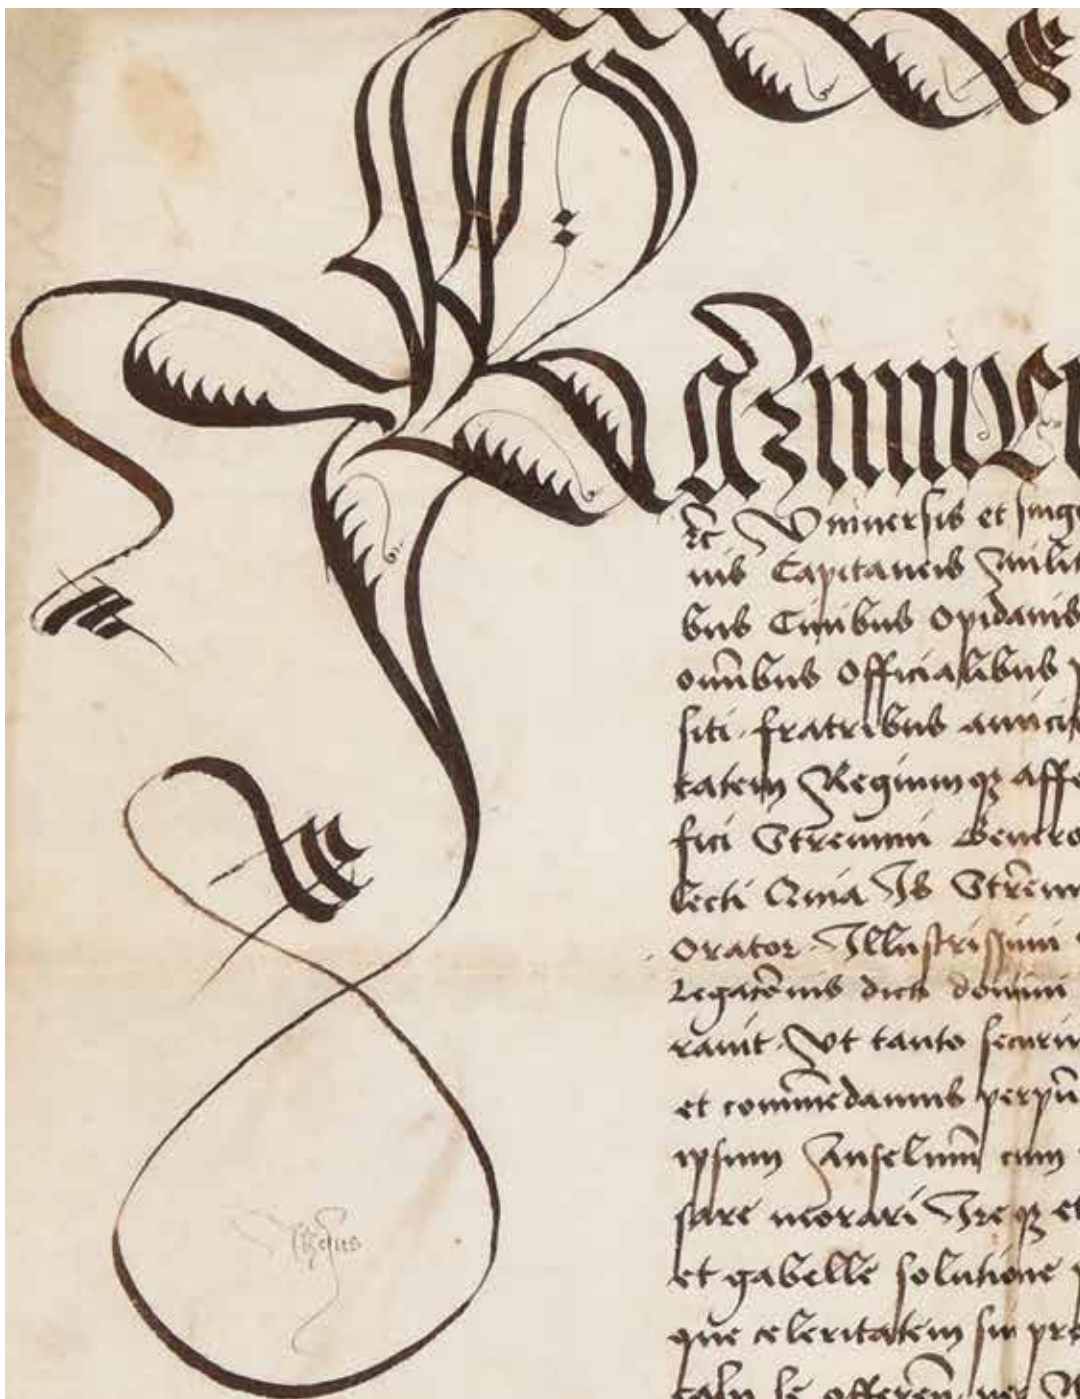 Kazimir
Universis et sing
nis Capitaneis Milit
bus Civibus Opidanis
omnibus Officialibus p
siti fratribus amici
tatem Regiumq affe
fici Strenuui Genero
lecti Quia Is Strenu
Orator Illustrissimi
Legacionis dicti domini
ravit Ut tanto securiu
et commendamus perpn
ipsum Anselmum cum
sare morari Ireq et
et gabelle solutione p
que celeritatem sin pre